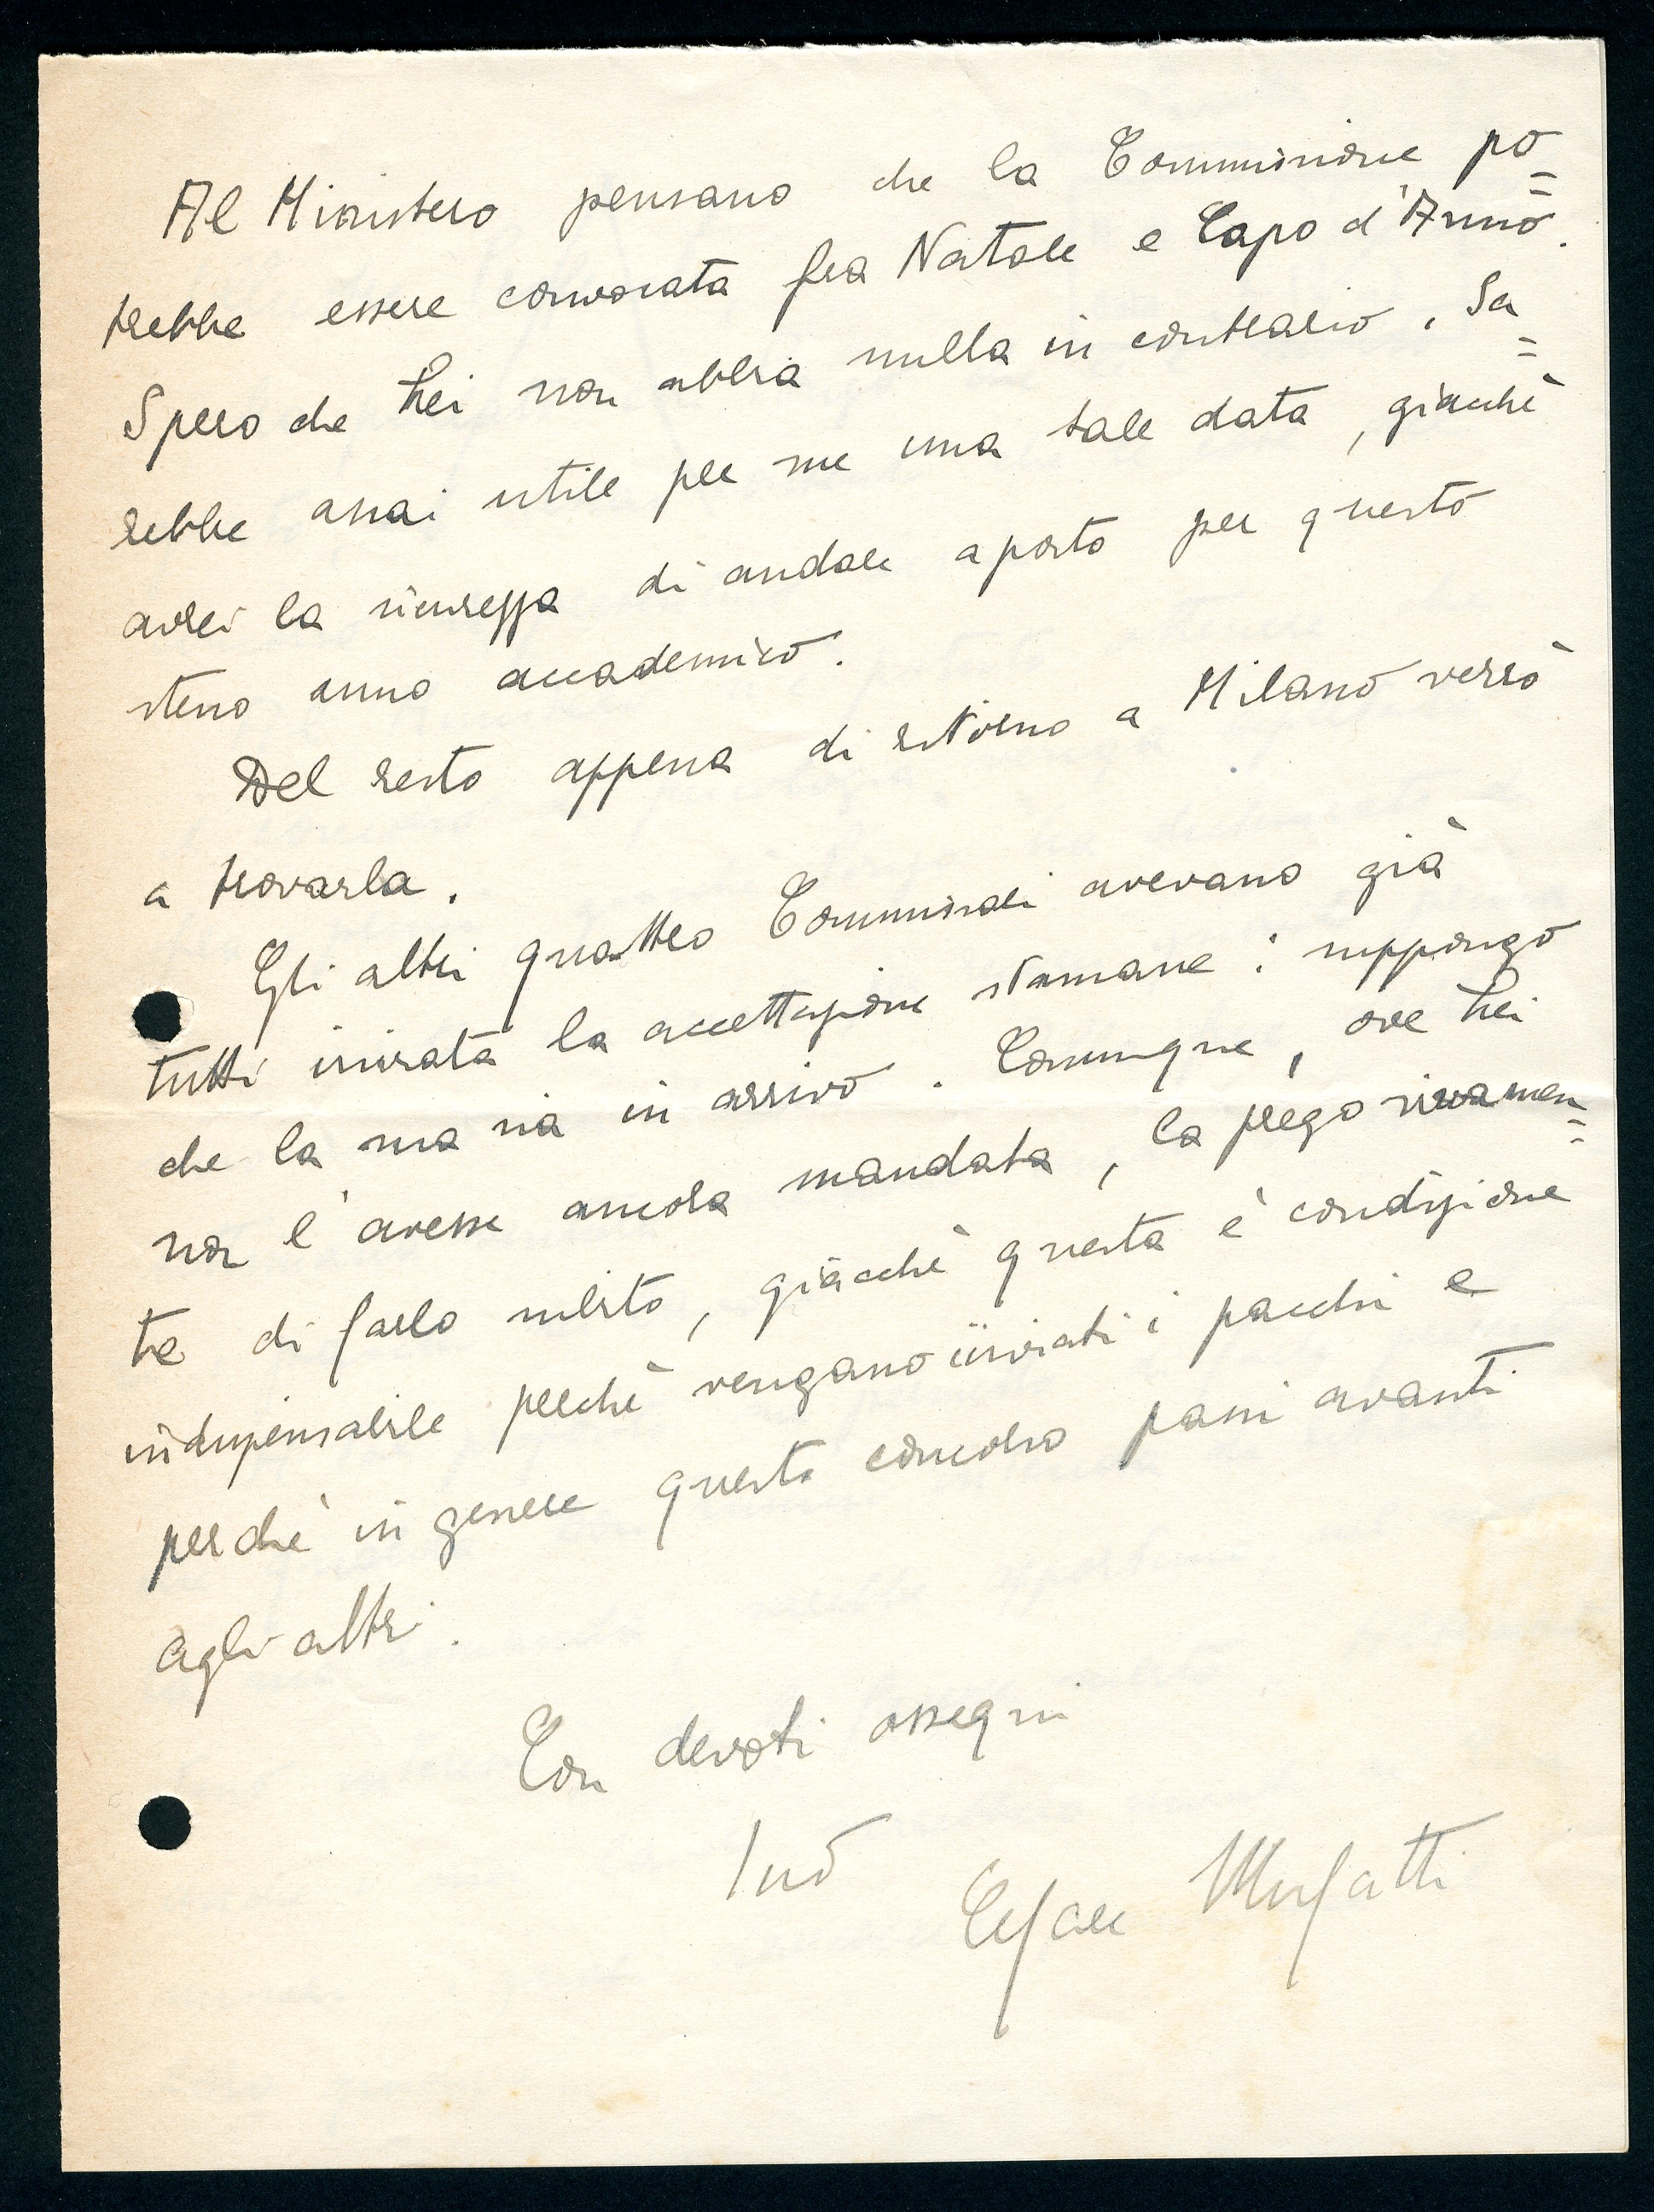 Al Ministero pensano che la Commissione po=
trebbe essere convocata fra Natale e Capo d'Anno.
Spero che Lei non abbia nulla in contrario. Sa=
rebbe assai utile per me una tale data, giacchè
avrei la sicurezza di andare a posto per questo
stesso anno accademico.
Del resto appena di ritorno a Milano verrò
a trovarla.
Gli altri quattro Commissari avevano già
tutti inviata la accettazione stamane: suppongo
che la sua sia in arrivo. Comunque, ove Lei
non l'avesse ancora mandata, la prego vivamen=
te di farlo subito, giacchè questa è condizione
indispensabile perchè vengano inviati i pacchi e
perchè in genere questo concorso passi avanti
agli altri.
Con devoti ossequi
Suo Cesare Musatti